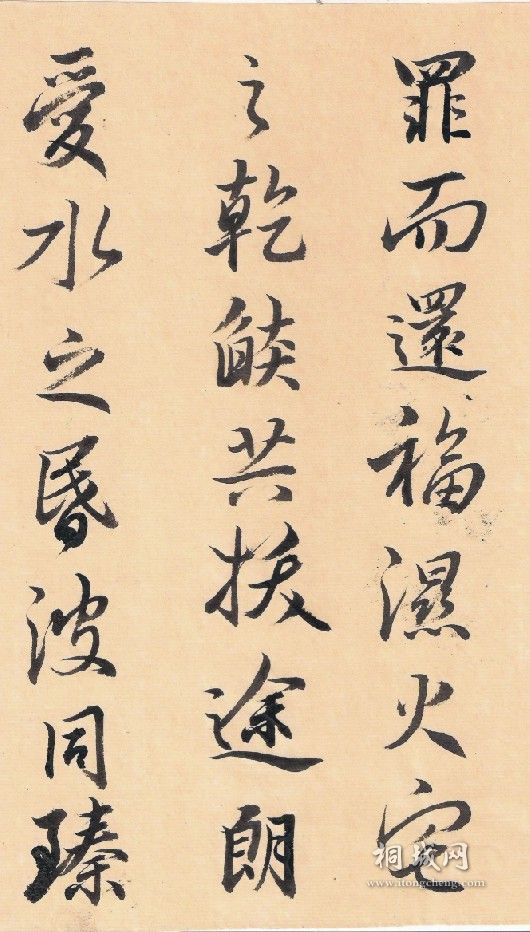 罪而還福濕火宅
之乾燄共拔途朗
愛水之昬波同臻
桐城网
www.itongcheng.com